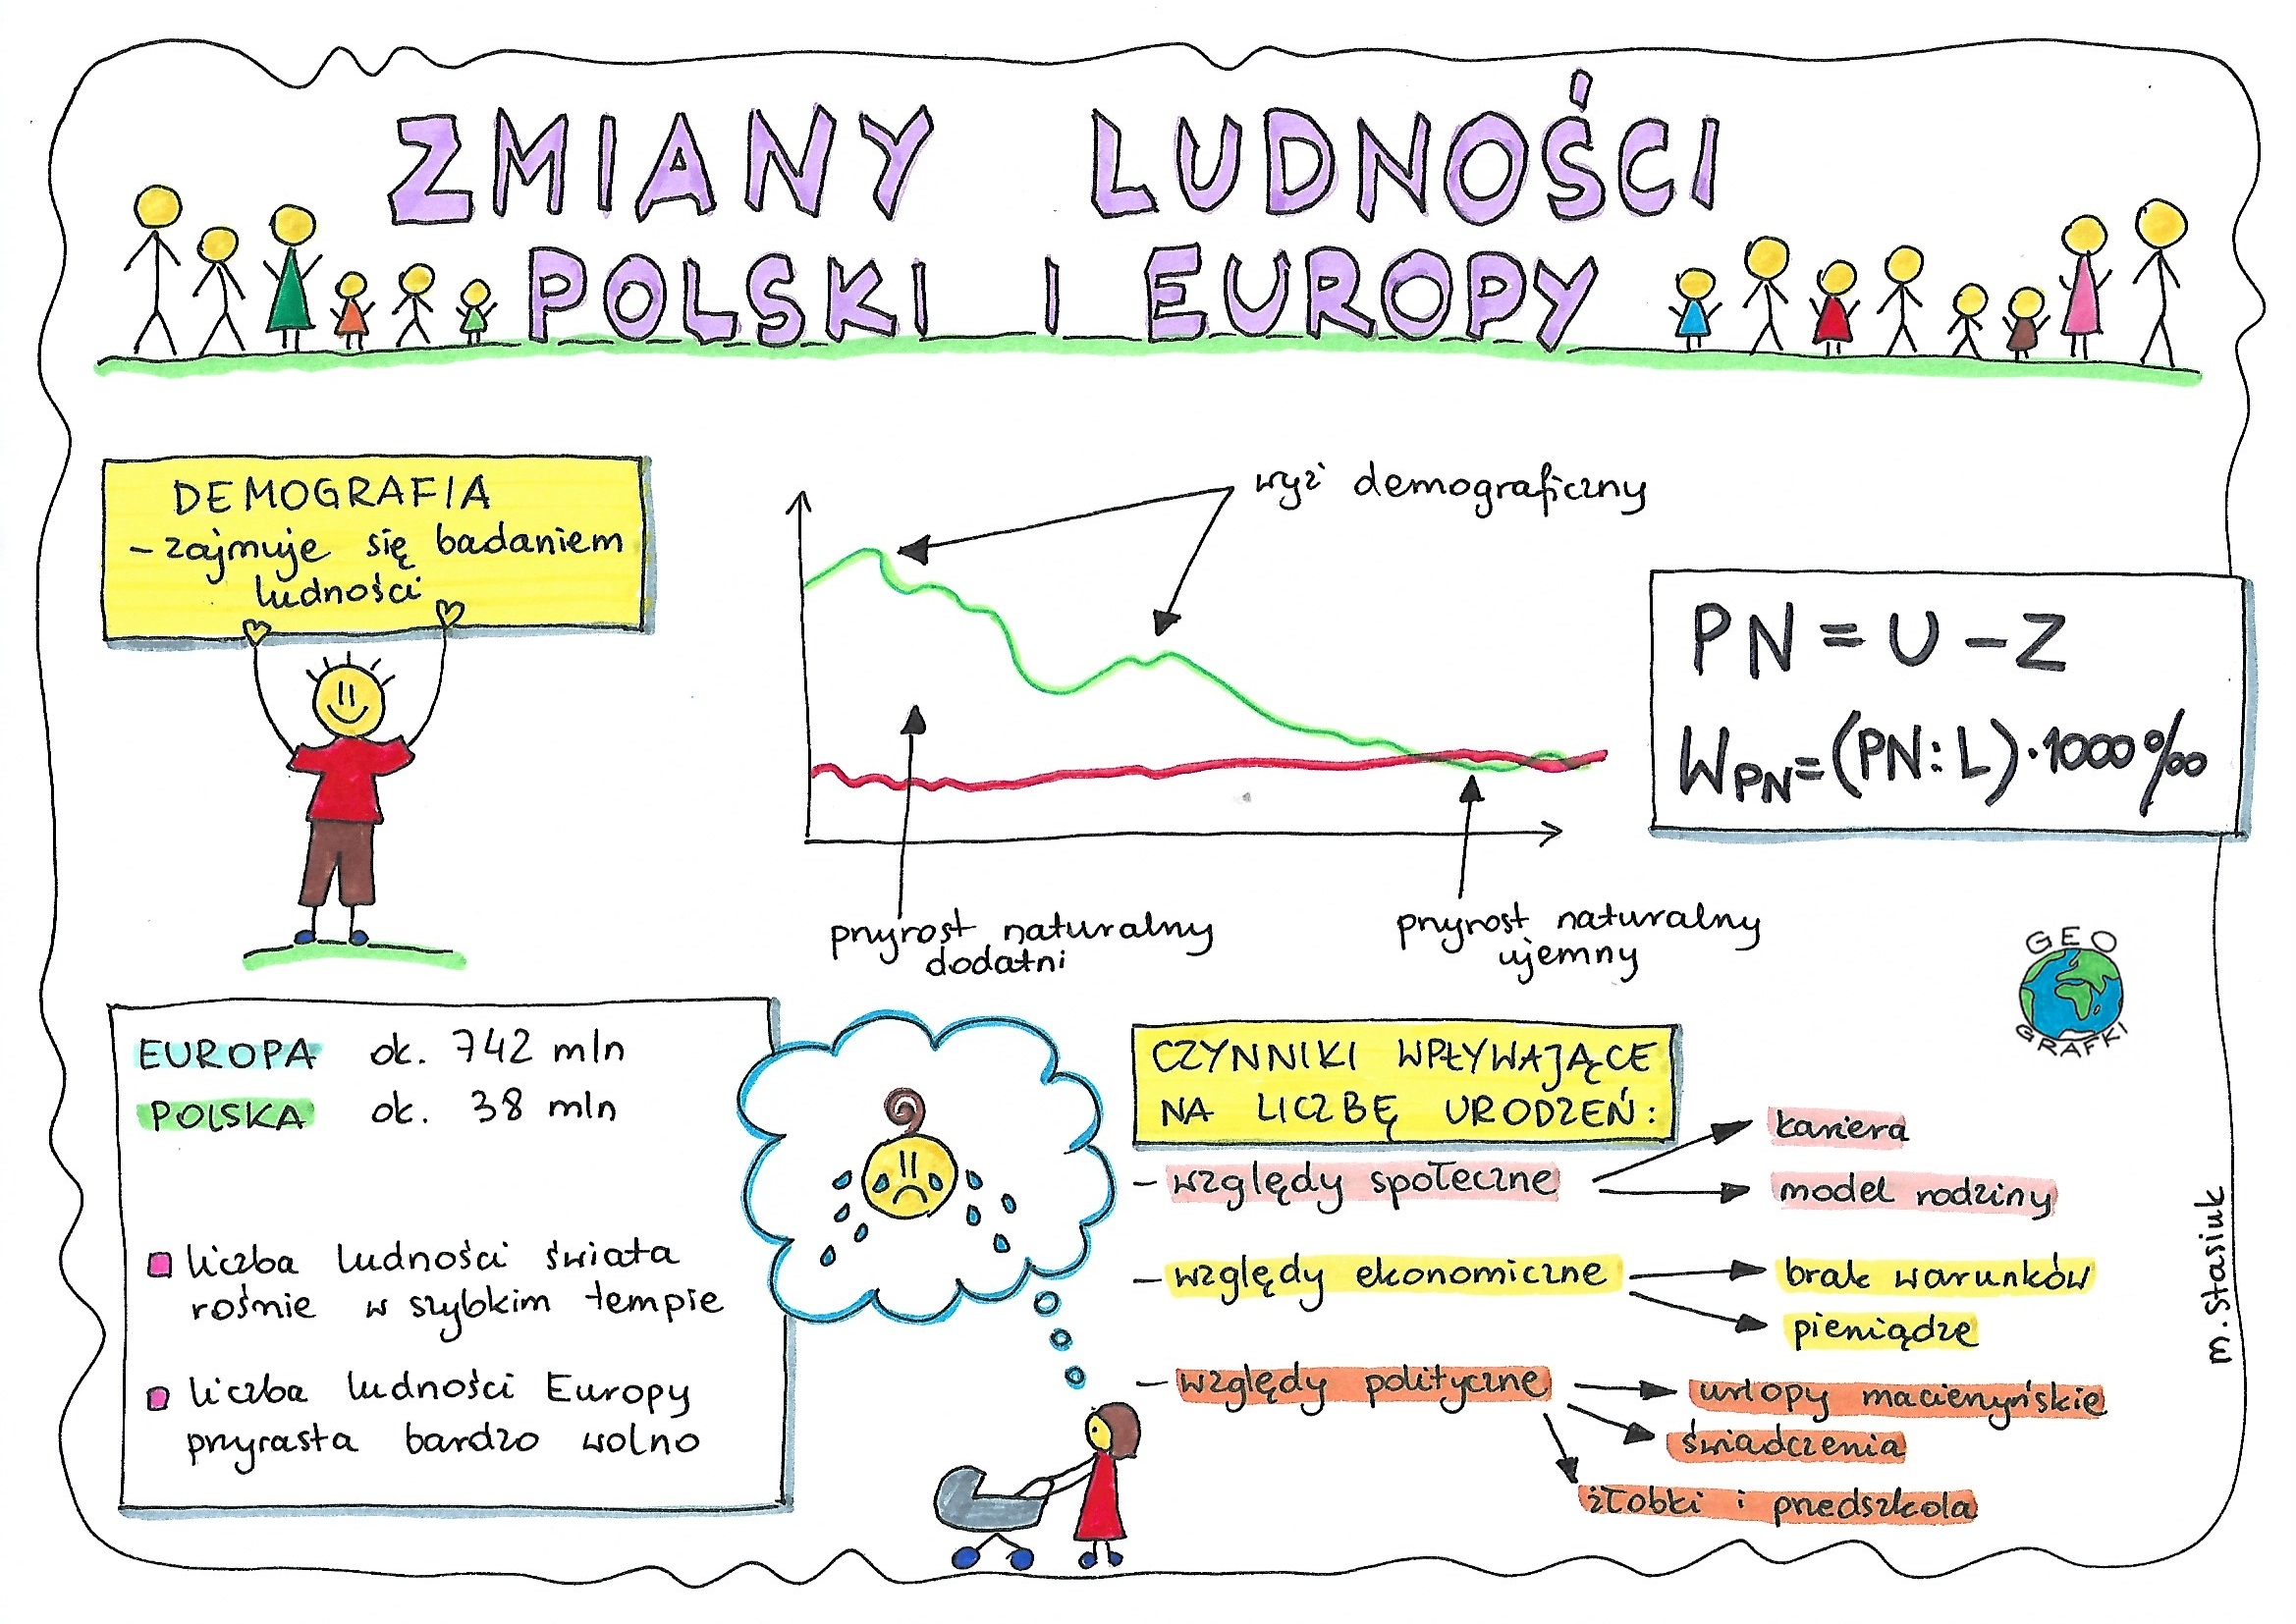 ZMIANY LUDNOŚCI
POLSKI I EUROPY
DEMOGRAFIA
- zajmuje się badaniem
ludności
wyż demograficzny
przyrost naturalny
dodatni
przyrost naturalny
ujemny
PN = U - Z
WPN = (PN : L) · 1000 ‰
GEO
GRAFKI
EUROPA ok. 742 mln
POLSKA ok. 38 mln
liczba ludności świata
rośnie w szybkim tempie
liczba ludności Europy
przyrasta bardzo wolno
CZYNNIKI WPŁYWAJĄCE
NA LICZBĘ URODZEŃ:
- względy społeczne
kariera
model rodziny
- względy ekonomiczne
brak warunków
pieniądze
- względy polityczne
urlopy macierzyńskie
świadczenia
żłobki i przedszkola
m. Stasiuk